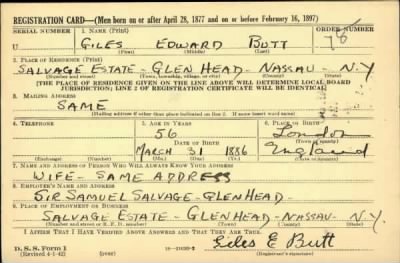 REGISTRATION CARD—(Men born on or after April 28, 1877 and on or before February 16, 1897)
SERIAL NUMBER 1. NAME (Print) ORDER NUMBER
U GILES EDWARD BUTT 78
(First) (Middle) (Last)
2. PLACE OF RESIDENCE (Print)
SALVAGE ESTATE - GLEN HEAD - NASSAU - N.Y
(Number and street) (Town, township, village, or city) (County) (State)
[THE PLACE OF RESIDENCE GIVEN ON THE LINE ABOVE WILL DETERMINE LOCAL BOARD
JURISDICTION; LINE 2 OF REGISTRATION CERTIFICATE WILL BE IDENTICAL]
3. MAILING ADDRESS
SAME
[Mailing address if other than place indicated on line 2. If same insert word same]
4. TELEPHONE 5. AGE IN YEARS 6. PLACE OF BIRTH
56 London
DATE OF BIRTH (Town or county)
MARCH 31 1886 England
(Exchange) (Number) (Mo.) (Day) (Yr.) (State or country)
7. NAME AND ADDRESS OF PERSON WHO WILL ALWAYS KNOW YOUR ADDRESS
WIFE - SAME ADDRESS
8. EMPLOYER'S NAME AND ADDRESS
SIR SAMUEL SALVAGE - GLEN HEAD -
9. PLACE OF EMPLOYMENT OR BUSINESS
SALVAGE ESTATE - GLEN HEAD - NASSAU - N.Y.
(Number and street or R. F. D. number) (Town) (County) (State)
I AFFIRM THAT I HAVE VERIFIED ABOVE ANSWERS AND THAT THEY ARE TRUE.
D. S. S. Form 1 Giles E Butt
(Revised 4-1-42) (over) (Registrant's signature)